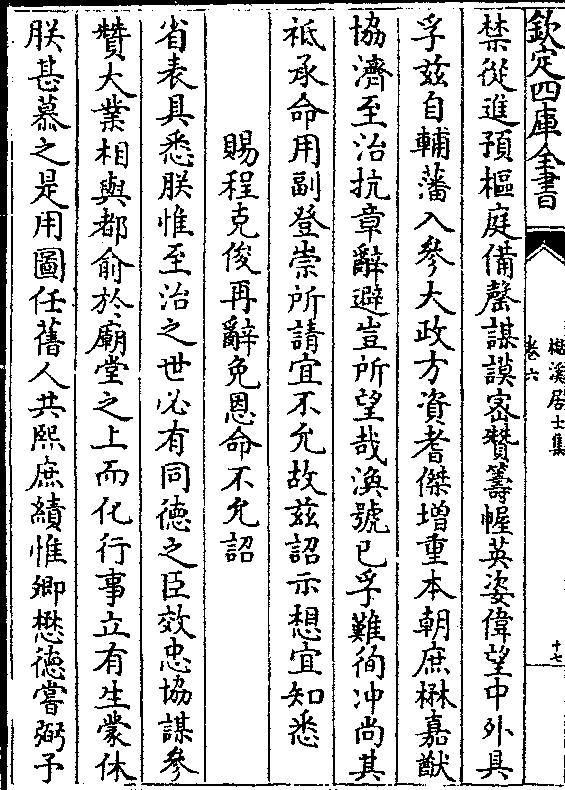 欽定四庫全書
檆溪居士集
卷六
十七
禁從進預樞庭備罄謀謨宻贊籌幄英姿偉望中外具
孚兹自輔藩入參大政方資耆傑增重本朝庶楙嘉猷
協濟至治抗章辭避豈所望哉渙號已孚難徇冲尚其
祗承命用副登崇所請宜不允故兹詔示想宜知悉
賜程克俊再辭免恩命不允詔
省表具悉朕惟至治之世必有同徳之臣效忠協謀參
贊大業相與都俞於廟堂之上而化行事立有生蒙休
朕甚慕之是用圖任舊人共熙庶績惟卿懋徳嘗弼予